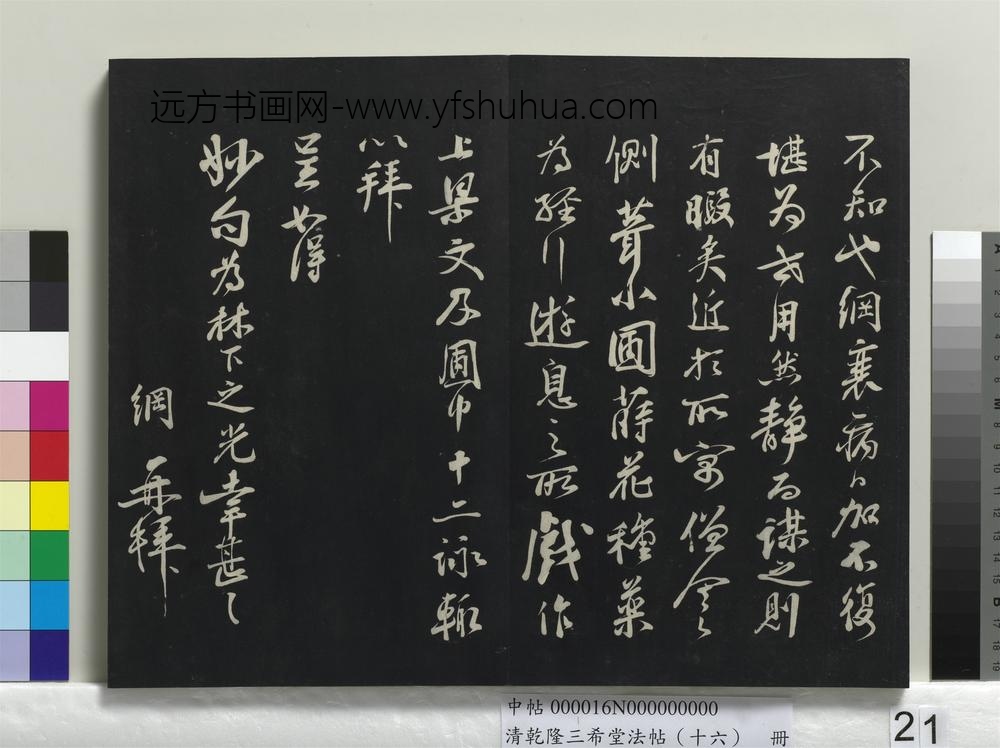 远方书画网-www.yfshuhua.com
不知也綱衰病日加不復
堪為世用然静而謀之則
有暇矣近於所寓僧舍之
側葺小圃蒔花種藥
為經行遊息之所戲作
上梁文及圃中十二詠輒
以拜
呈如得
妙句為林下之光幸甚〻
綱 再拜
中帖 000016N000000000
清乾隆三希堂法帖（十六） 冊
21